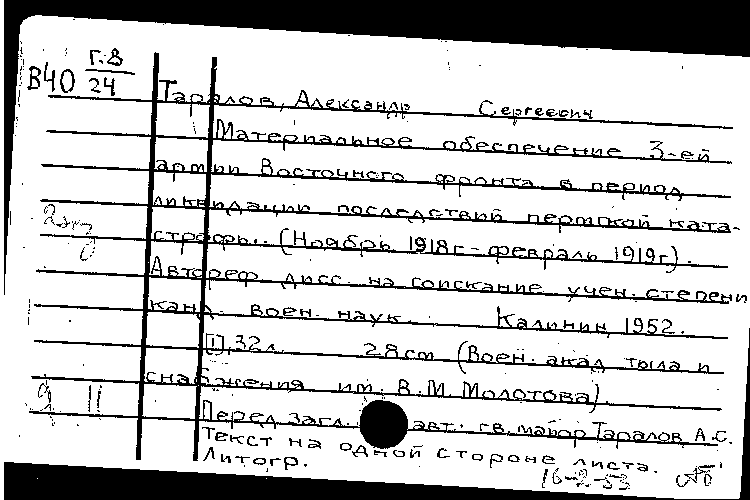 В40 Г-8/24
Таралов, Александр Сергеевич
Материальное обеспечение 3-ей
армии Восточного фронта в период
ликвидации последствий пермской ката-
строфы. (Ноябрь 1918г-февраль 1919г).
Автореф. дисс. на соискание учен. степени
канд. воен. наук. Калинин, 1952.
[1], 32л. 28см (Воен. акад тыла и
снабжения им. В.М. Молотова).
Перед загл. авт: гв. майор Таралов А.С.
Текст на одной стороне листа.
Литогр.
16-2-53